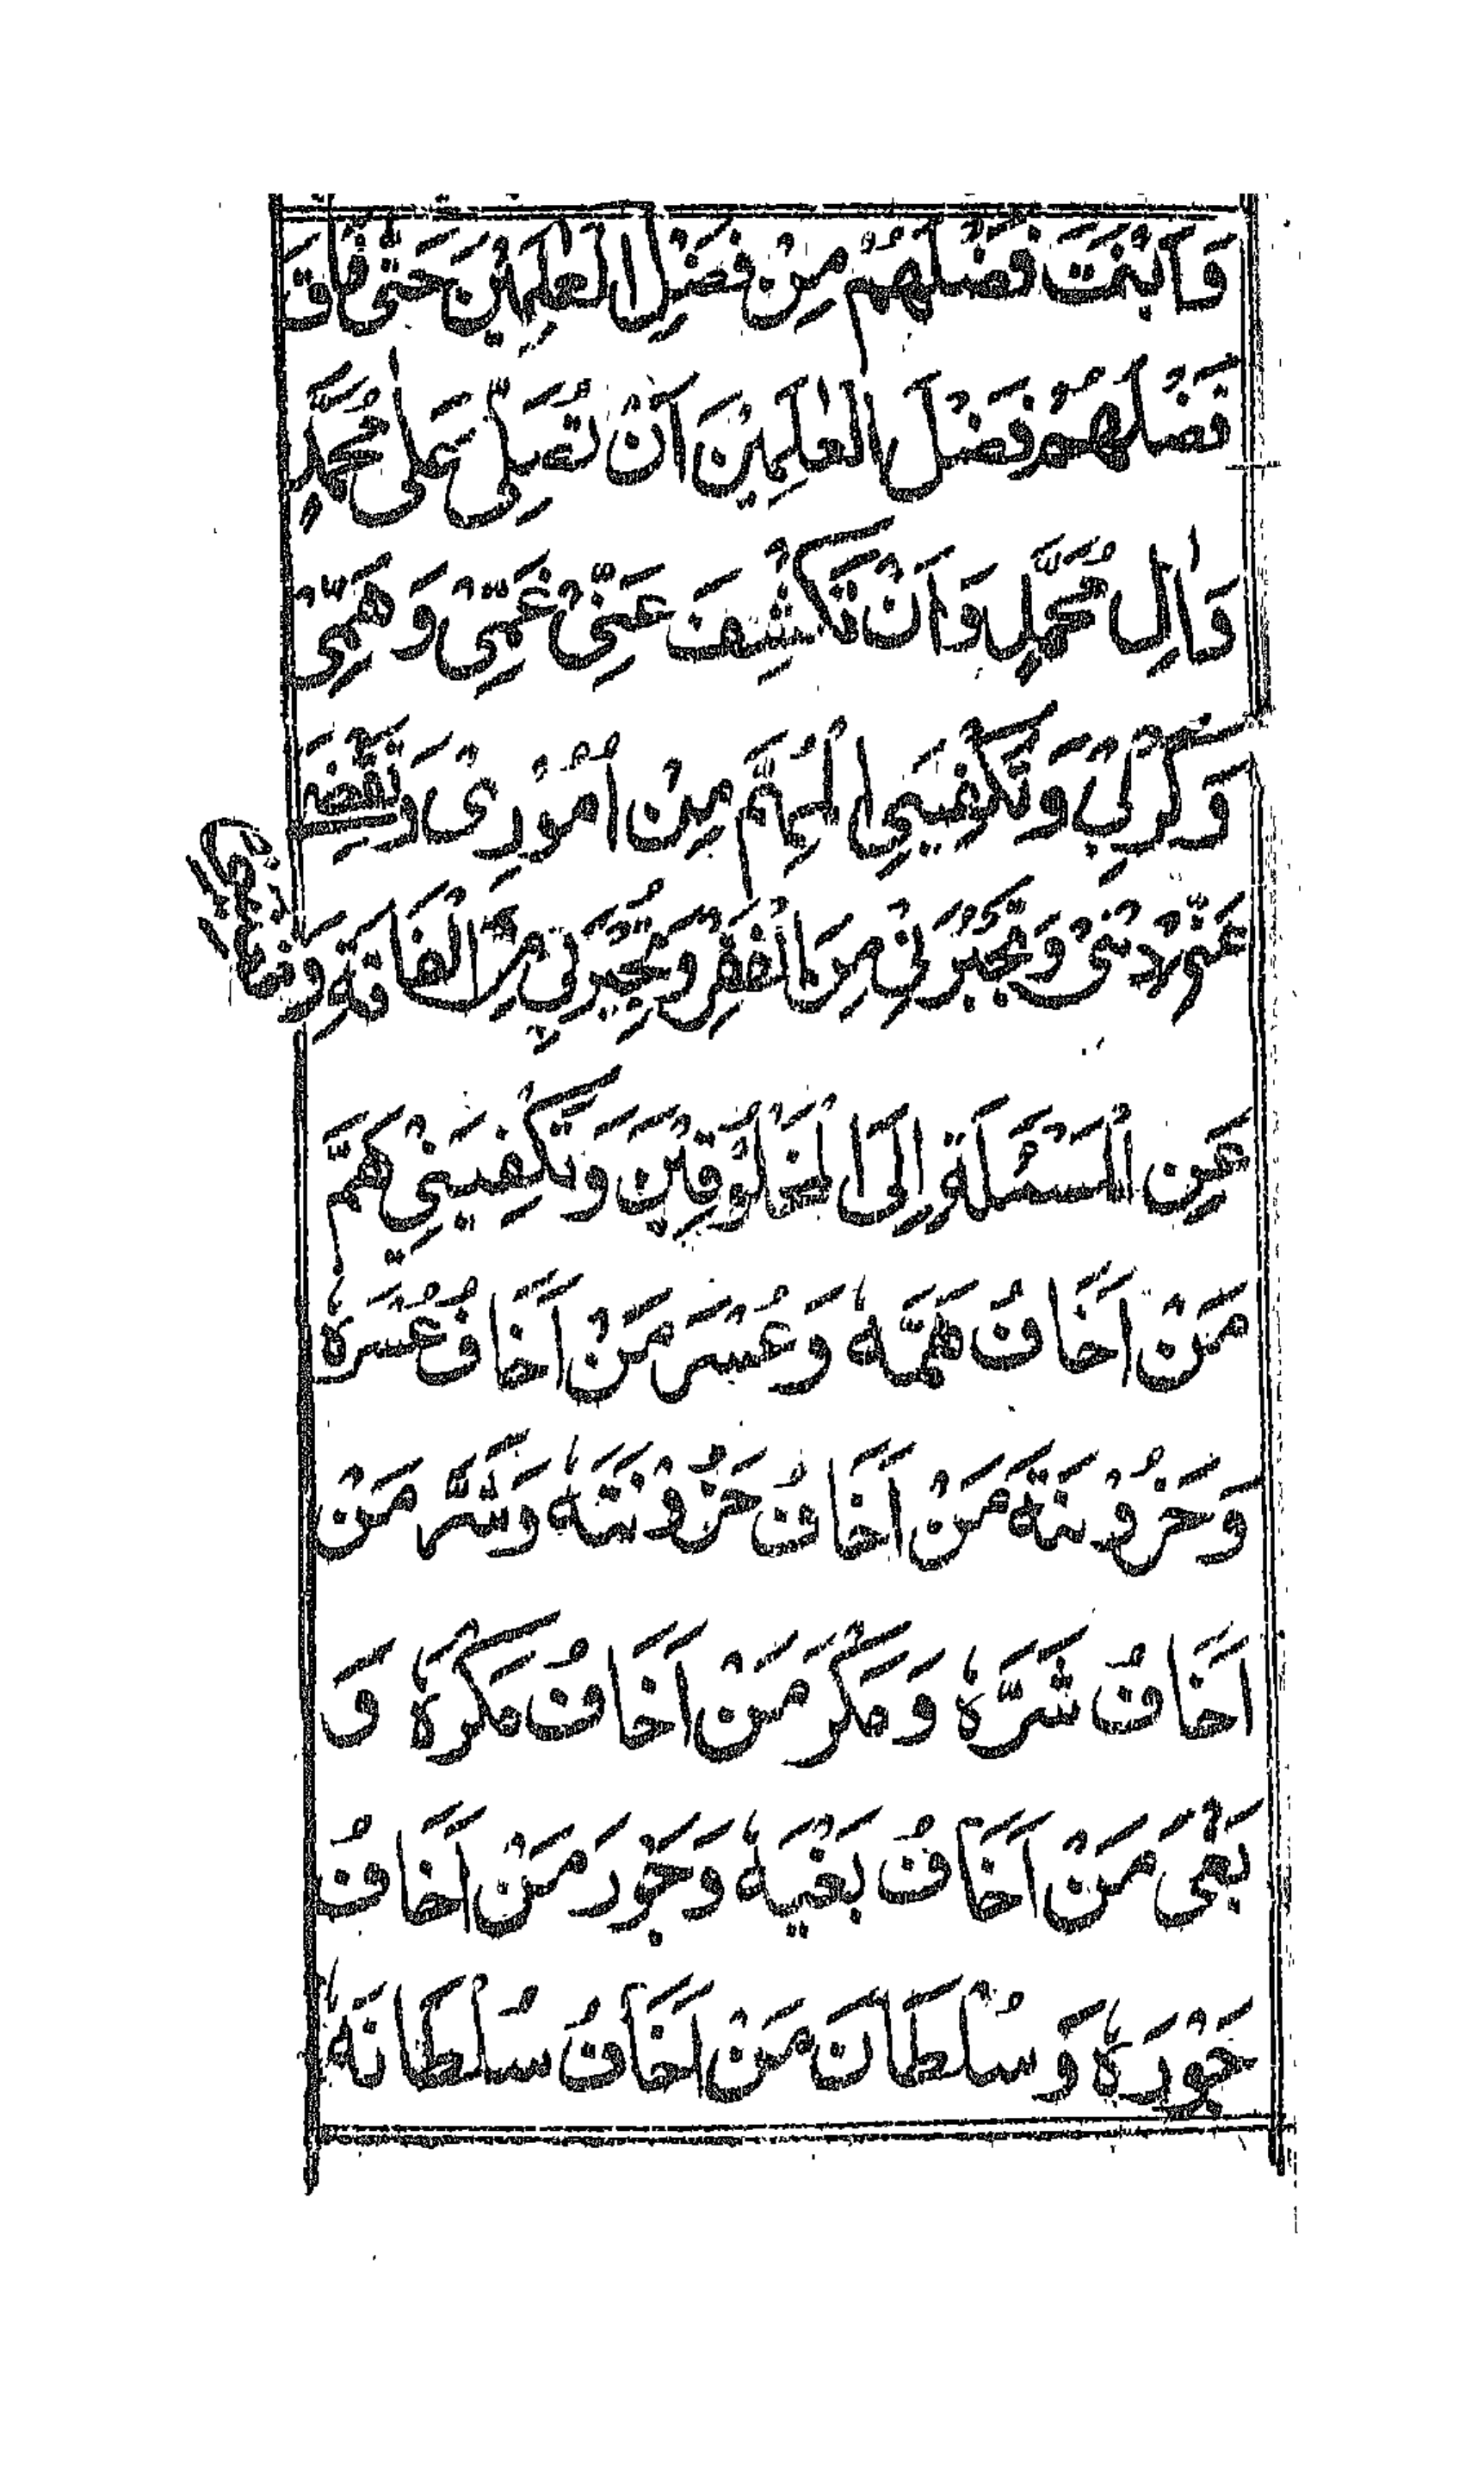 وَاَبَنْتَ فَضْلَهُمْ مِنْ فَضْلِ الْعٰلَمِيْنَ حَتّٰى فَاقَ
فَضْلُهُمْ فَضْلَ الْعٰلَمِيْنَ اَنْ تُصَلِّىَ عَلٰى مُحَمَّدٍ
وَاٰلِ مُحَمَّدٍ وَاَنْ تَكْشِفَ عَنِّىْ غَمِّىْ وَهَمِّىْ
وَكَرْبِىْ وَتَكْفِيَنِى الْمُهِمَّ مِنْ اُمُوْرِىْ وَتَقْضِىَ
عَنِّىْ دَيْنِىْ وَتَجْبُرَنِىْ مِنَ الْفَقْرِ وَتُجِيْرَنِىْ مِنَ الْفَاقَةِ
عَنِ الْمَسْئَلَةِ اِلَى الْمَخْلُوْقِيْنَ وَتَكْفِيَنِىْ هَمَّ
مَنْ اَخَافُ هَمَّهٗ وَعُسْرَ مَنْ اَخَافُ عُسْرَهٗ
وَحَزُوْنَةَ مَنْ اَخَافُ حَزُوْنَتَهٗ وَشَرَّ مَنْ
اَخَافُ شَرَّهٗ وَمَكْرَ مَنْ اَخَافُ مَكْرَهٗ وَ
بَغْىَ مَنْ اَخَافُ بَغْيَهٗ وَجَوْرَ مَنْ اَخَافُ
جَوْرَهٗ وَسُلْطَانَ مَنْ اَخَافُ سُلْطَانَهٗ